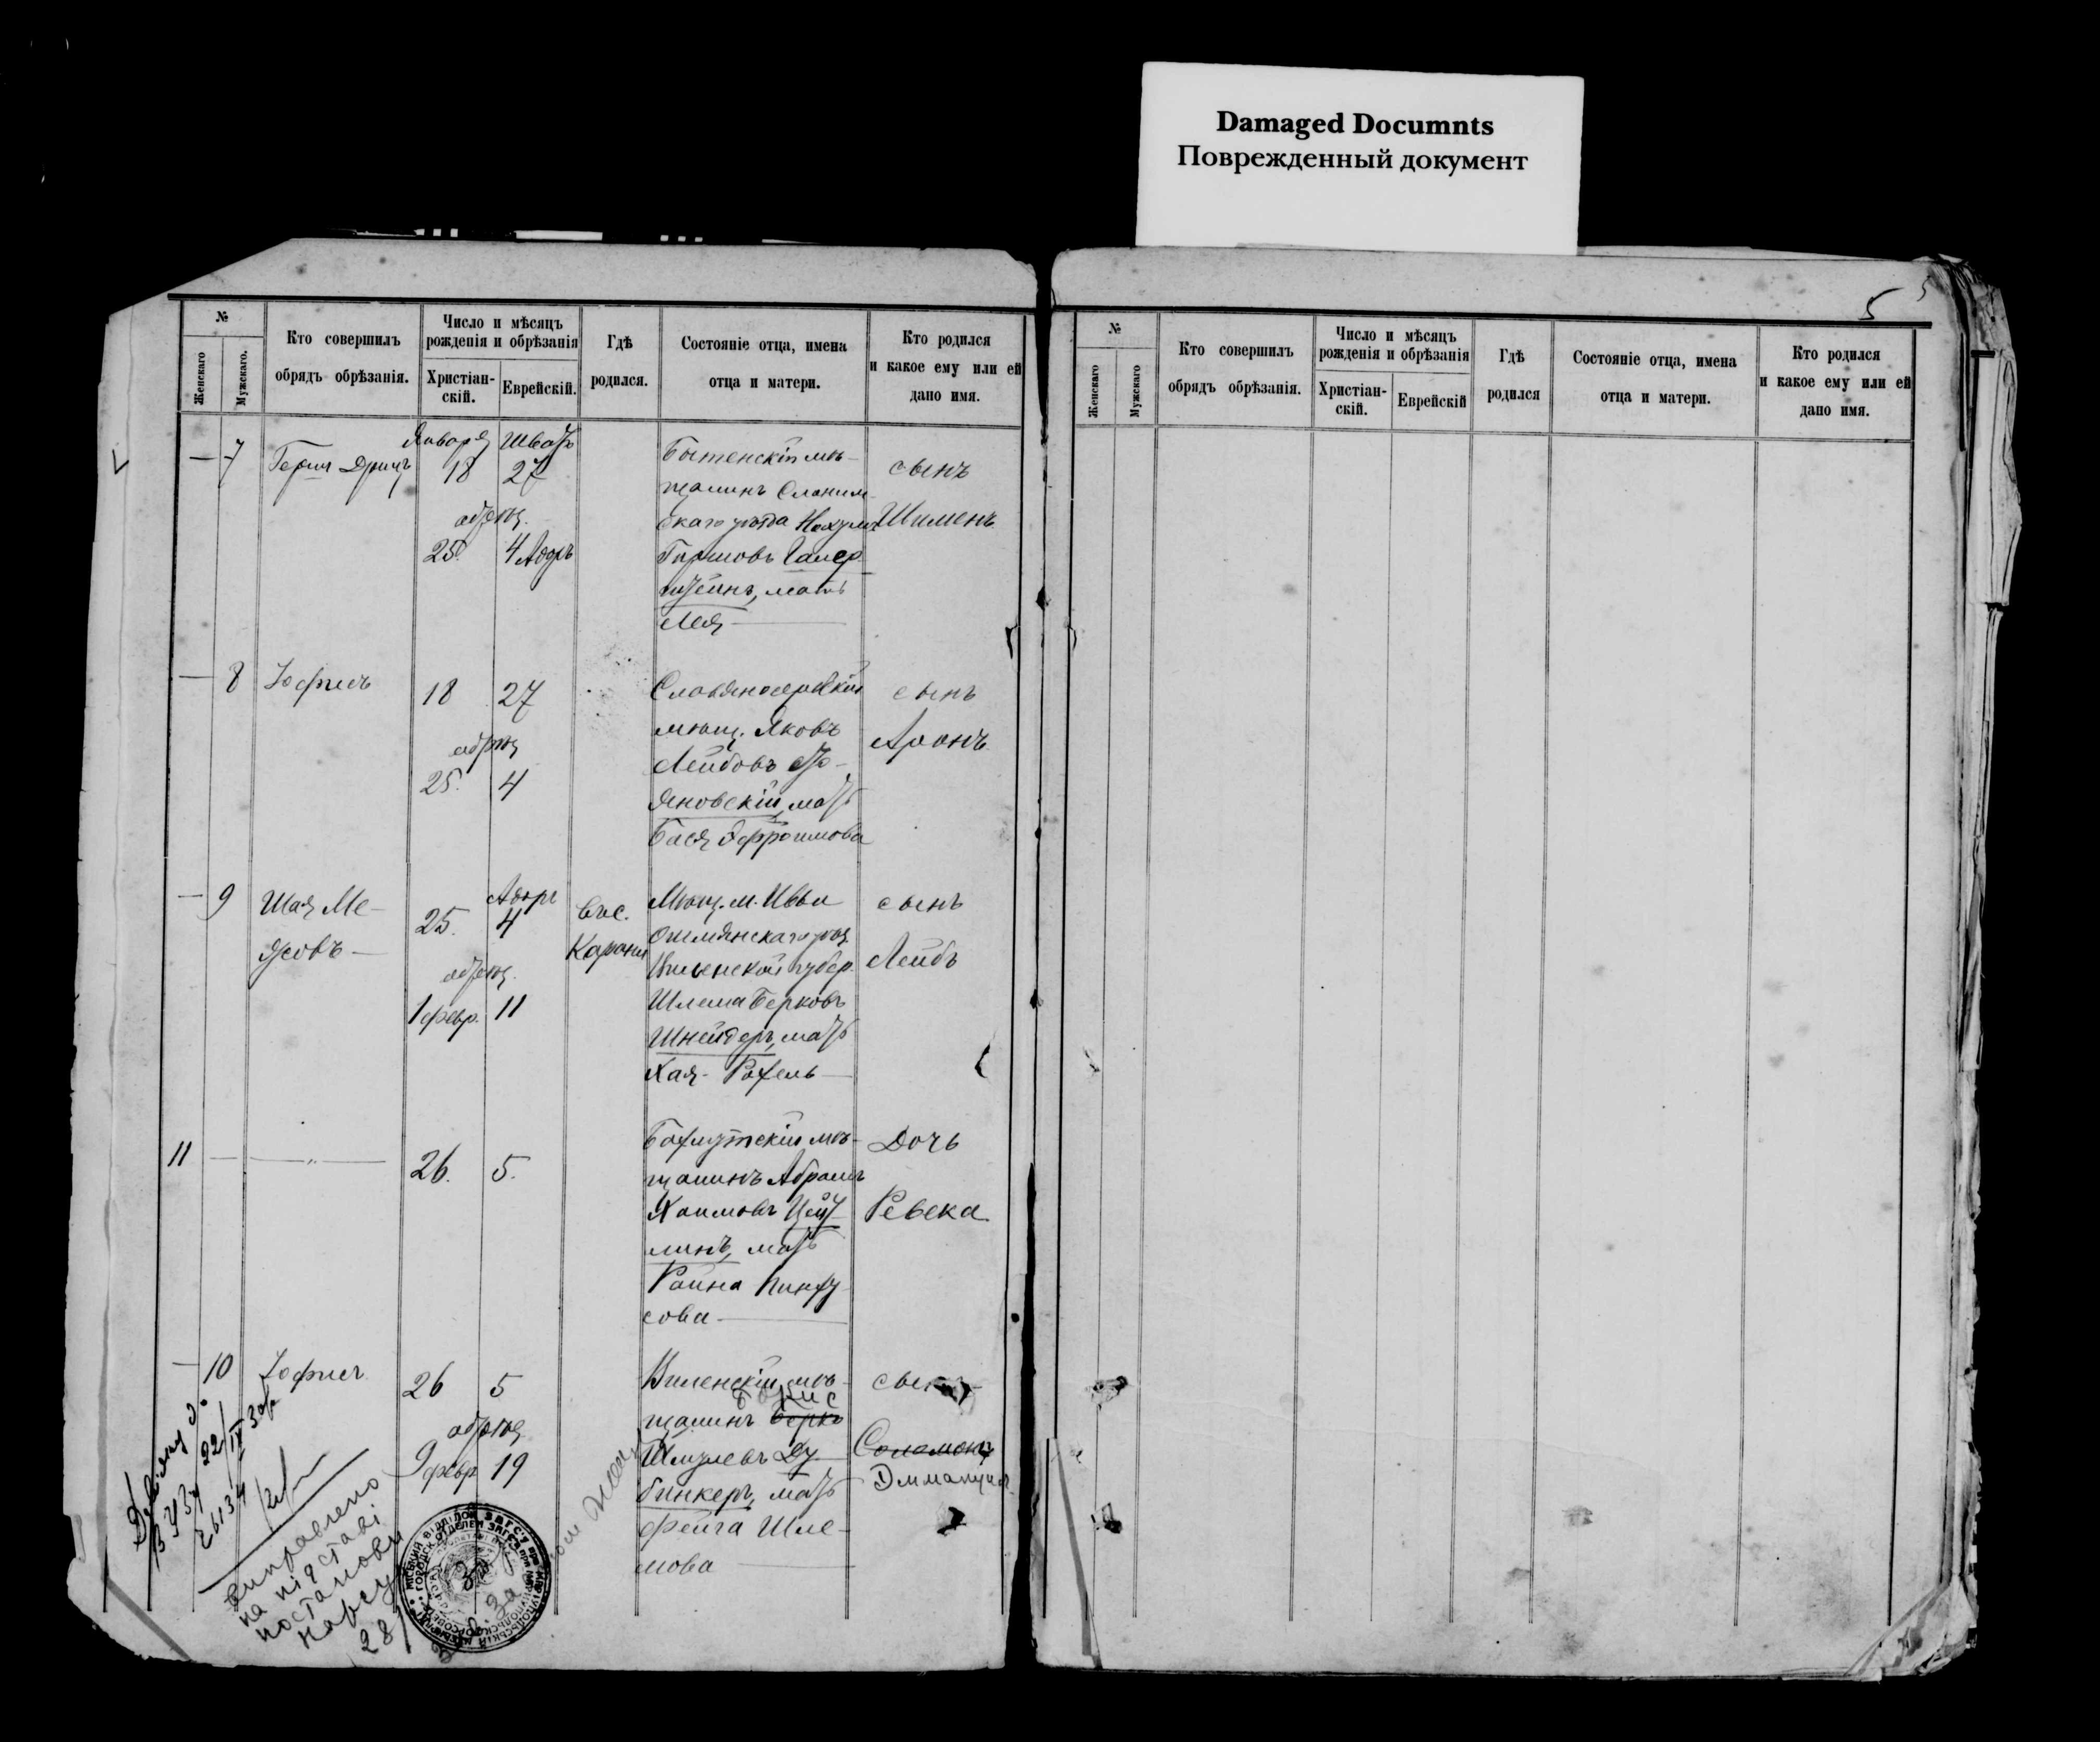 Damaged Documnts
Поврежденный документ
5
№
Женскаго
Мужскаго.
Кто совершилъ
обрядъ обрѣзанія.
Число и мѣсяцъ
рожденія и обрѣзанія
Христіан-
скій.
Еврейскій.
Гдѣ
родился.
Состояніе отца, имена
отца и матери.
Кто родился
и какое ему или ей
дано имя.
— 7
Января
18
обрѣз.
25.
Шватъ
27
4 Адаръ
Бытенскій мѣ-
щанинъ Слоним-
скаго уѣзда
мать
Лея
сынъ
Шименъ
— 8
Іофисъ
18 27
обрѣз
25. 4
Славяносербскій
мѣщ. Яковъ
Лейбовъ
яновскій, мать
Бася Эфроимова
сынъ
Аронъ
— 9
Шая Ме-
25.
Адаръ
4
обрѣз.
1 февр. 11
Мѣщ. м. Ивьи
Ошмянскаго уѣз.
Виленской губер.
Шлема Берковъ
Шнейдеръ, мать
Хая-Рохель
сынъ
Лейбъ
11 — — „ —
26. 5.
Бахмутскій мѣ-
щанинъ Абрамъ
Хаимовъ Цейт-
линъ, мать
Раина Пинху-
сова
Дочь
Ревека
— 10
Іофисъ
26 5
обрѣз
9 февр 19
Виленскій мѣ-
Борис
щанинъ Берко
Шмулевъ Ду-
бинкеръ, мать
Фейга Шле-
мова
сынъ
Соломонъ
Эммануил
виправлено
на підставі
постанови
нарсуду
28/
№
Женскаго
Мужскаго
Кто совершилъ
обрядъ обрѣзанія.
Число и мѣсяцъ
рожденія и обрѣзанія
Христіан-
скій.
Еврейскій
Гдѣ
родился
Состояніе отца, имена
отца и матери.
Кто родился
и какое ему или ей
дано имя.